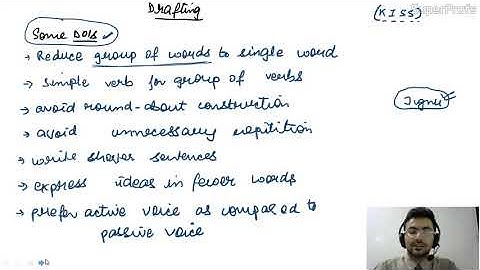 Drafting
(KISS)
SuperProfs
Some DOs
→ Reduce group of words to single word
→ simple verb for group of verbs
→ avoid round-about construction
→ avoid unnecessary repitition
→ write shorer sentences
→ express ideas in fewer words
→ prefer active voice as compared to
passive voice